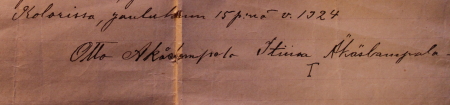 Kolarissa, joulukuun 15 p:nä v. 1924
Otto Äkäslompolo Äkäslompolo
I